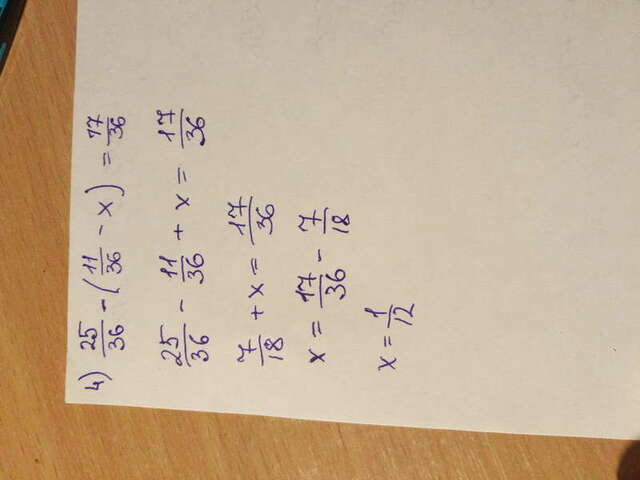 4) 25/36 - (11/36 - x) = 17/36
25/36 - 11/36 + x = 17/36
7/18 + x = 17/36
x = 17/36 - 7/18
x = 1/12